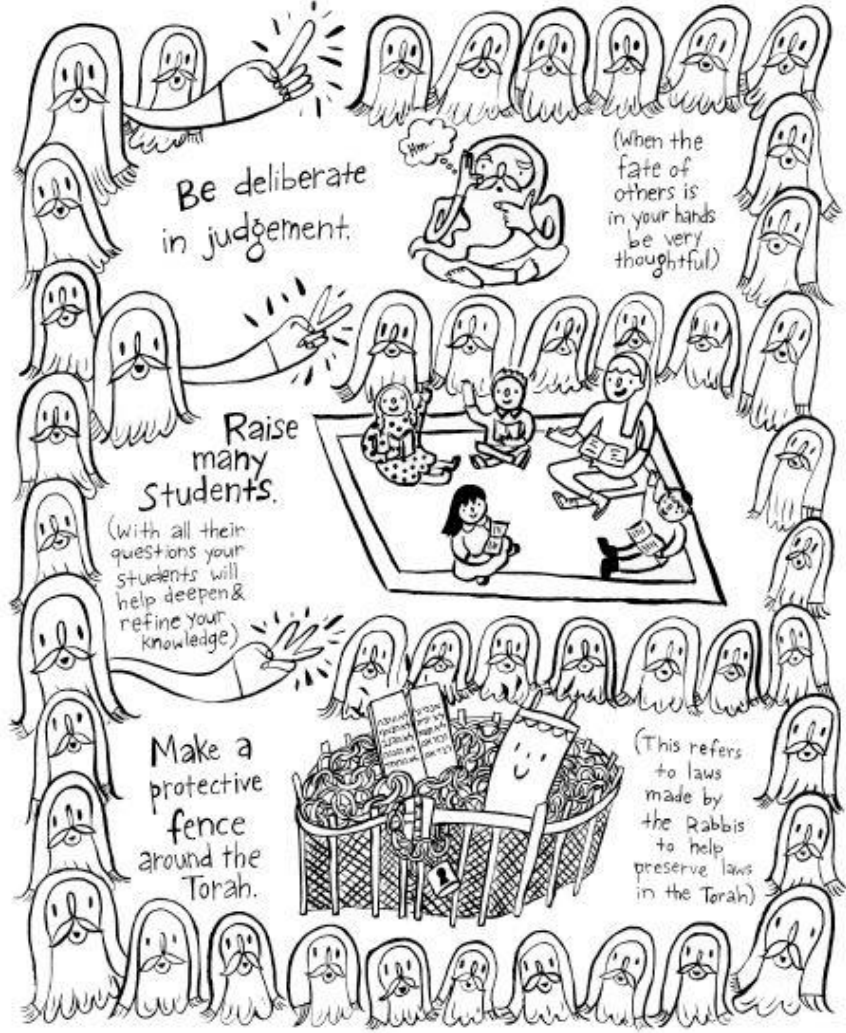 Hm...
Be deliberate
in judgement.
(When the
fate of
others is
in your hands
be very
thoughtful)
Raise
many
Students.
(With all their
questions your
students will
help deepen &
refine your
knowledge)
Make a
protective
fence
around the
Torah.
(This refers
to laws
made by
the Rabbis
to help
preserve laws
in the Torah)